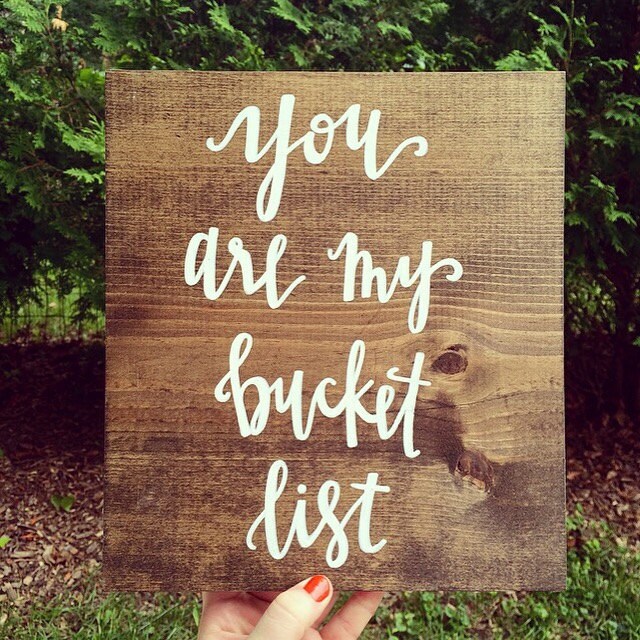 you
are my
bucket
list